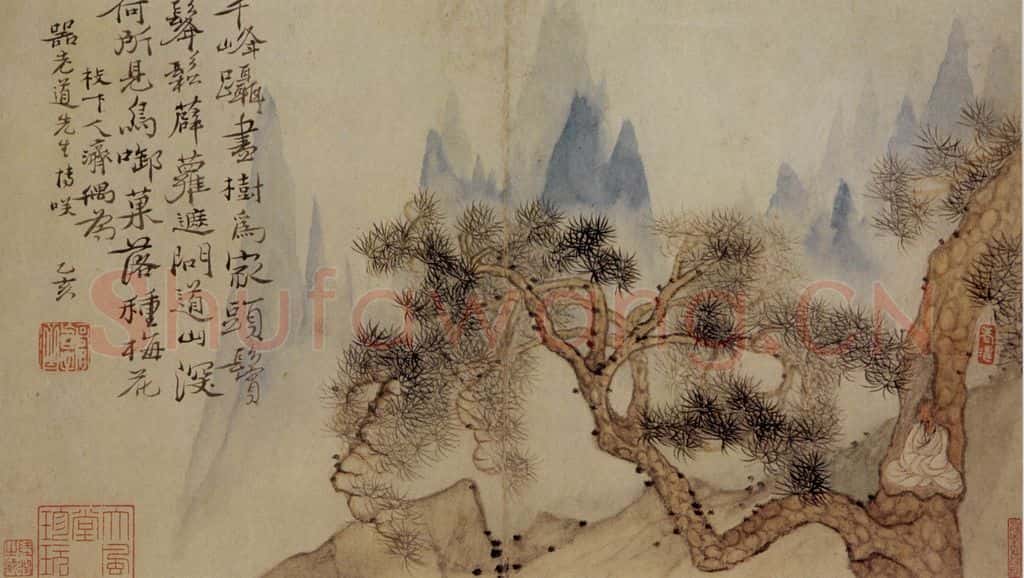 千峰躡盡樹為家頭鬢
鬆薜蘿遮問道山深
何所見鳥啣菓落種梅花
枝下人濟偶為
器老道先生博咲 乙亥
大風堂珍玩
Shufawang.CN